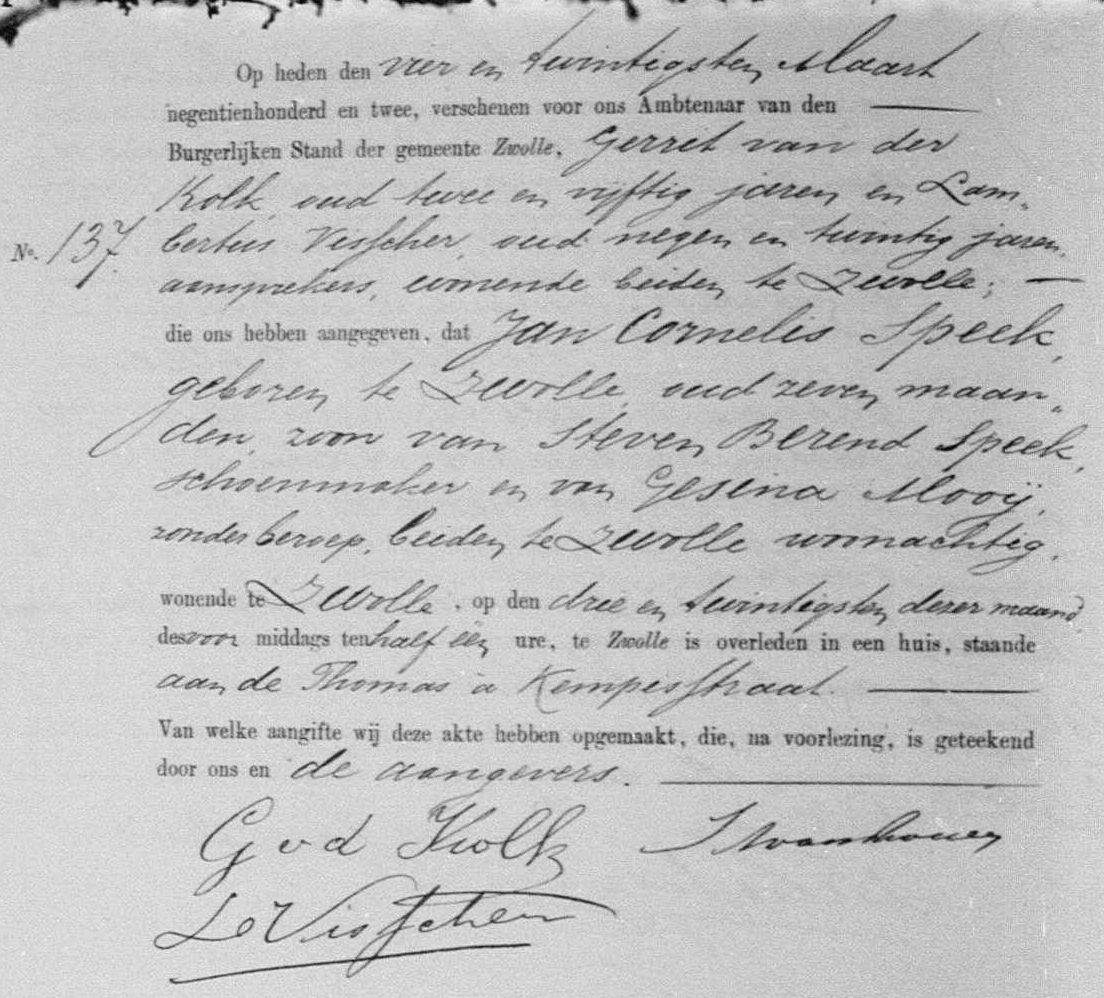 Op heden den vier en twintigsten Maart
negentienhonderd en twee, verschenen voor ons Ambtenaar van den
Burgerlijken Stand der gemeente Zwolle, Gerret van der
Kolk, oud twee en vijftig jaren en Lam„
No. 137. bertus Visscher, oud negen en twintig jaren,
aansprekers, wonende beiden te Zwolle;
die ons hebben aangegeven, dat Jan Cornelis Speek,
geboren te Zwolle, oud zeven maan„
den, zoon van Steven Berend Speek,
schoenmaker en van Gesina Mooij,
zonder beroep, beiden te Zwolle woonachtig,
wonende te Zwolle, op den drie en twintigsten dezer maand
des voor middags ten half één ure, te Zwolle is overleden in een huis, staande
aan de Thomas a Kempisstraat.
Van welke aangifte wij deze akte hebben opgemaakt, die, na voorlezing, is geteekend
door ons en de aangevers.
G v d Kolk
L Visscher